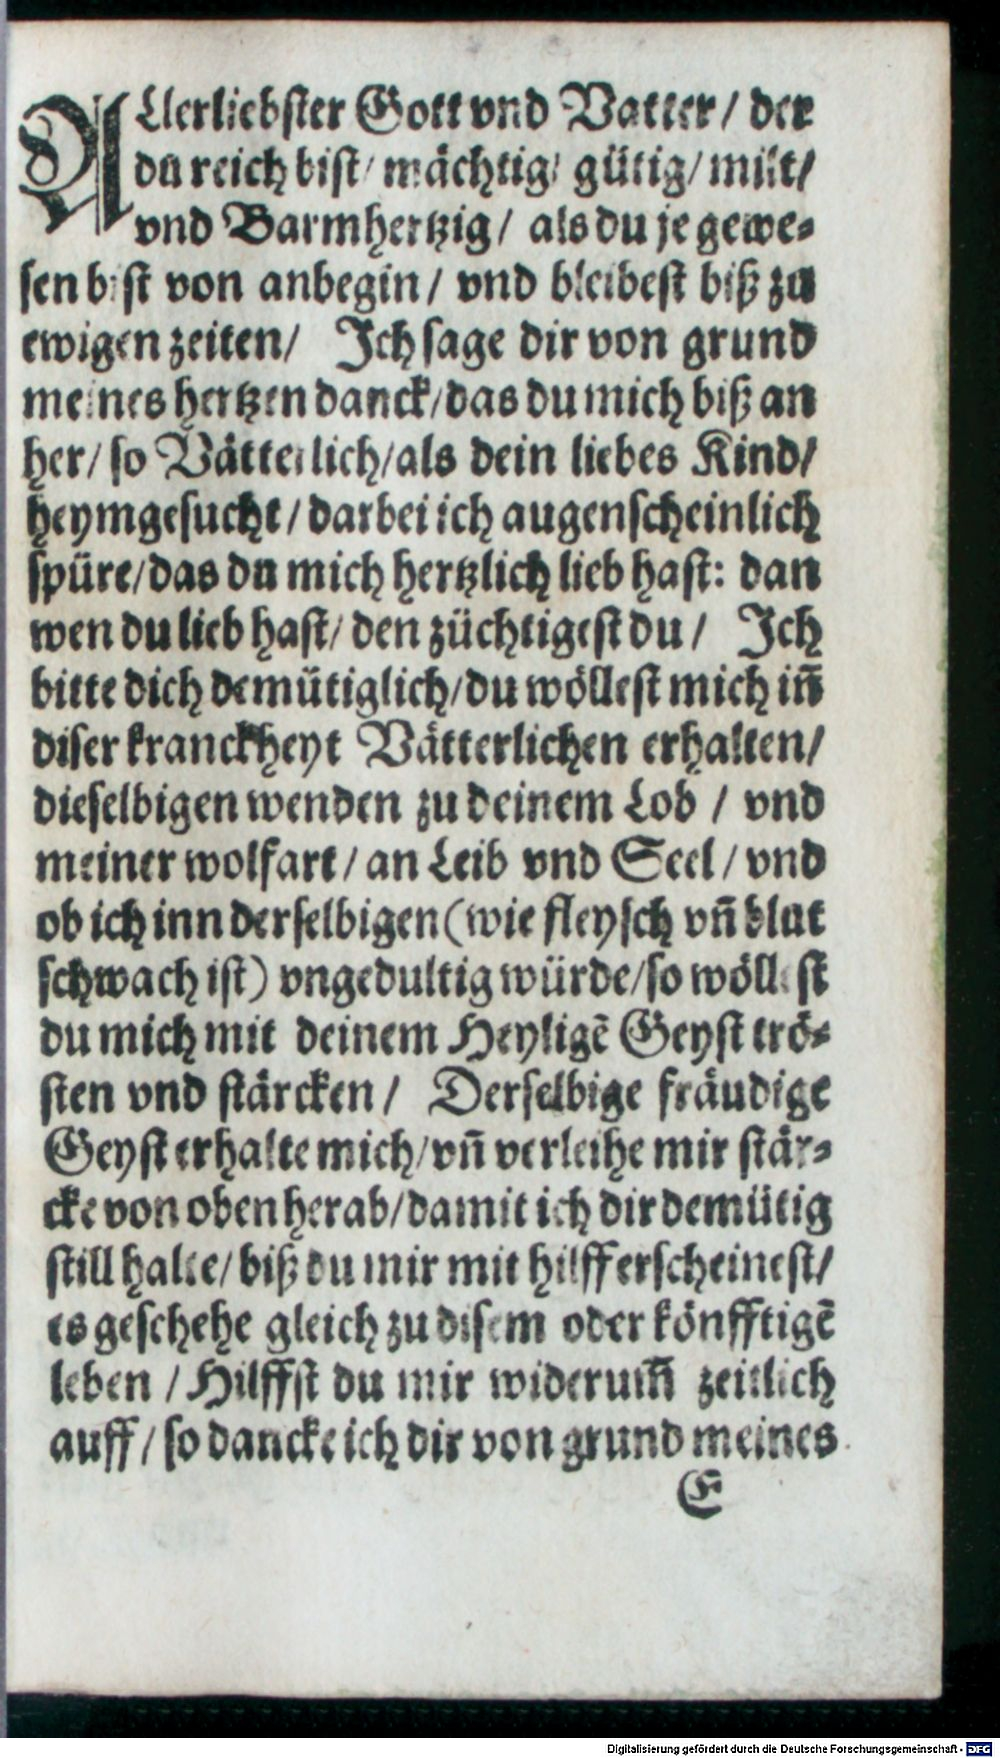 ALlerliebster Gott vnd Vatter / der
du reich bist / mächtig / gütig / milt /
vnd Barmhertzig / als du je gewe-
sen bist von anbegin / vnd bleibest biß zu
ewigen zeiten / Ich sage dir von grund
meines hertzen danck / das du mich biß an
her / so Vätterlich / als dein liebes Kind /
heymgesucht / darbei ich augenscheinlich
spüre / das du mich hertzlich lieb hast: dan
wen du lieb hast / den züchtigest du / Ich
bitte dich demütiglich / du wöllest mich iñ
diser kranckheyt Vätterlichen erhalten /
dieselbigen wenden zu deinem Lob / vnd
meiner wolfart / an Leib vnd Seel / vnd
ob ich inn derselbigen (wie fleysch vñ blut
schwach ist) vngedultig würde / so wöllest
du mich mit deinem Heyligē Geyst trö-
sten vnd stärcken / Derselbige fräudige
Geyst erhalte mich / vñ verleihe mir stär-
cke von oben herab / damit ich dir demütig
still halte / biß du mir mit hilff erscheinest /
es geschehe gleich zu disem oder könfftigē
leben / Hilffst du mir widerum̄ zeitlich
auff / so dancke ich dir von grund meines
E
Digitalisierung gefördert durch die Deutsche Forschungsgemeinschaft - DFG